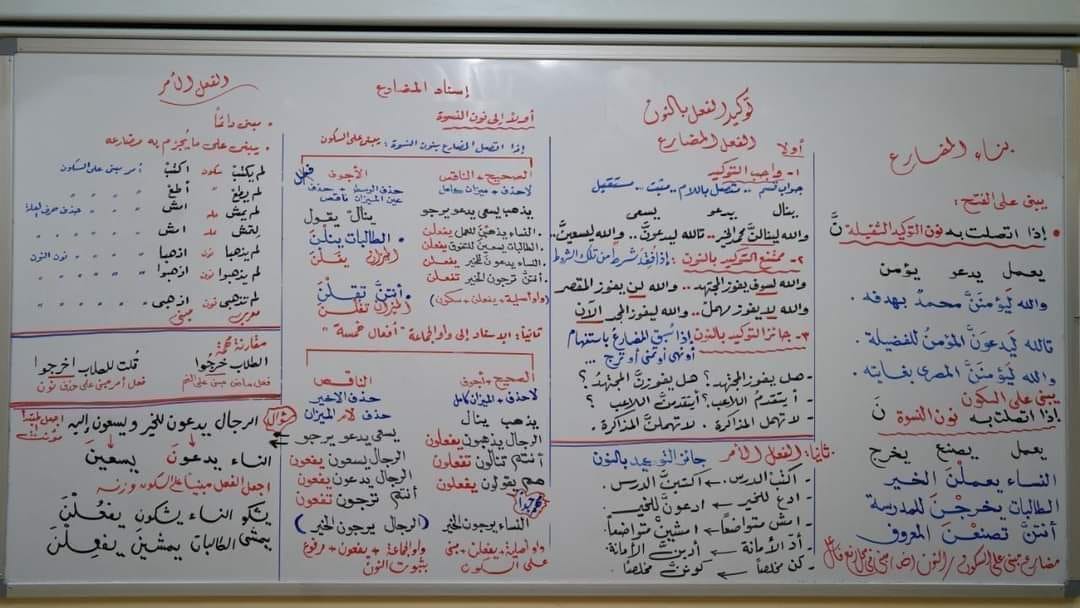 بناء المضارع
يبنى على الفتح:
• إذا اتصلت به نون التوكيد الثقيلة نَّ
يعمل يدعو يؤمن
والله لَيؤمننَّ محمدٌ بهدفه.
تالله لَيدعونَّ المؤمنُ للفضيلة.
والله لَيؤمننَّ المصرى بغايته.
يبنى على السكون
إذا اتصلت به نون النسوة نَ
يعمل يصنع يخرج
النساء يعملْنَ الخير
الطالبات يخرجْنَ للمدرسة
أنتنَّ تصنعْنَ المعروف
مضارع مبنى على السكون / النون
توكيد الفعل بالنون
أولا الفعل المضارع
١- واجب التوكيد
جواب قسم .. متصل باللام .. مثبت .. مستقبل
ينال يدعو يسعى
والله لينالنَّ محمد الخير .. تالله ليدعونَّ .. والله ليسعينَّ ..
٢- ممتنع التوكيد بالنون : إذا فقد شرط من تلك الشروط
والله لسوف يفوز المجتهد .. والله لن يفوز المقصر
والله لا يفوز مهمل .. والله ليفوز المجد الآن
٣- جائز التوكيد بالنون إذا سُبق المضارع باستفهام
أو نهى أو تمنى أو ترج ...
- هل يفوز المجتهد ؟ هل يفوزنَّ المجتهدُ ؟
- أيتقدم اللاعب ؟ أيتقدمنَّ اللاعب ؟
- لا تهمل المذاكرة . لا تهملنَّ المذاكرة .
ثانيا: الفعل الأمر جائز التوكيد بالنون
- اكتب الدرس . ← اكتبنَّ الدرس .
- ادع للخير ← ادعونَّ للخير .
- امش متواضعاً ← امشينَّ متواضعاً .
- أدِّ الأمانة ← أدينَّ الأمانة .
- كن مخلصاً ← كوننَّ مخلصاً .
إسناد المضارع
أولاً إلى نون النسوة
إذا اتصل المضارع بنون النسوة : يبنى على السكون
الصحيح + الناقص الأجوف
لا حذف + ميزان كامل حذف الوسط + حذف
عين الميزان ناقص
يذهب يسعى يدعو يرجو ينال يقول
. النساء يذهبْنَ للعمل يفعلْنَ
. الطالبات يسعينَ للتفوق يفعلن . الطالبات ينلْنَ
. النساء يدعونَ للخير يفعلن الميزان يفلْنَ
. أنتنَّ ترجون الخير تفعلن . أنتنَّ تقلْنَ
(واو أصلية + يفعلن + سكون) الميزان تفلْنَ
ثانياً: الإسناد إلى واو الجماعة "أفعال خمسة"
الصحيح + أجوف الناقص
لا حذف + الميزان كامل حذف الأخير
حذف لام الميزان
يذهب ينال يسعى يدعو يرجو
الرجال يذهبون يفعلون الرجال يسعون يفعون
أنتم تنالون تفعلون الرجال يدعون يفعون
هم يقولون يفعلون أنتم ترجون تفعون
هام جدا
النساء يرجون الخير (الرجال يرجون الخير)
واو أصلية + يفعلن + مبنى على السكون
واو الجماعة + يفعون + مرفوع بثبوت النون
والفعل الأمر
• مبنى دائماً
• يبنى على ما يُجزم به مضارعه
لم يكتبْ سكون اكتبْ أمر مبنى على السكون
لم يطع " أطع " " " "
لم يمش علة امش " " " حذف حرف العلة
لتمش علة امش " " " "
لم يذهبا نون اذهبا " " " النون
لم يذهبوا نون اذهبوا " " " "
لم تذهبى نون اذهبى " " " "
معرب مبنى
مقارنة مهمة:
الطلاب خرجُوا قلت للطلاب اخرجوا
فعل ماض مبنى على الضم فعل أمر مبنى على حذف نون
سؤال الرجال يدعون للخير ويسعون إليه
النساء يدعونَ يسعينَ
اجعل الفعل مبنيا على السكون وزنه
يشكو النساء يشكون يفعُلْنَ
يمشى الطالبات يمشين يفعِلْنَ